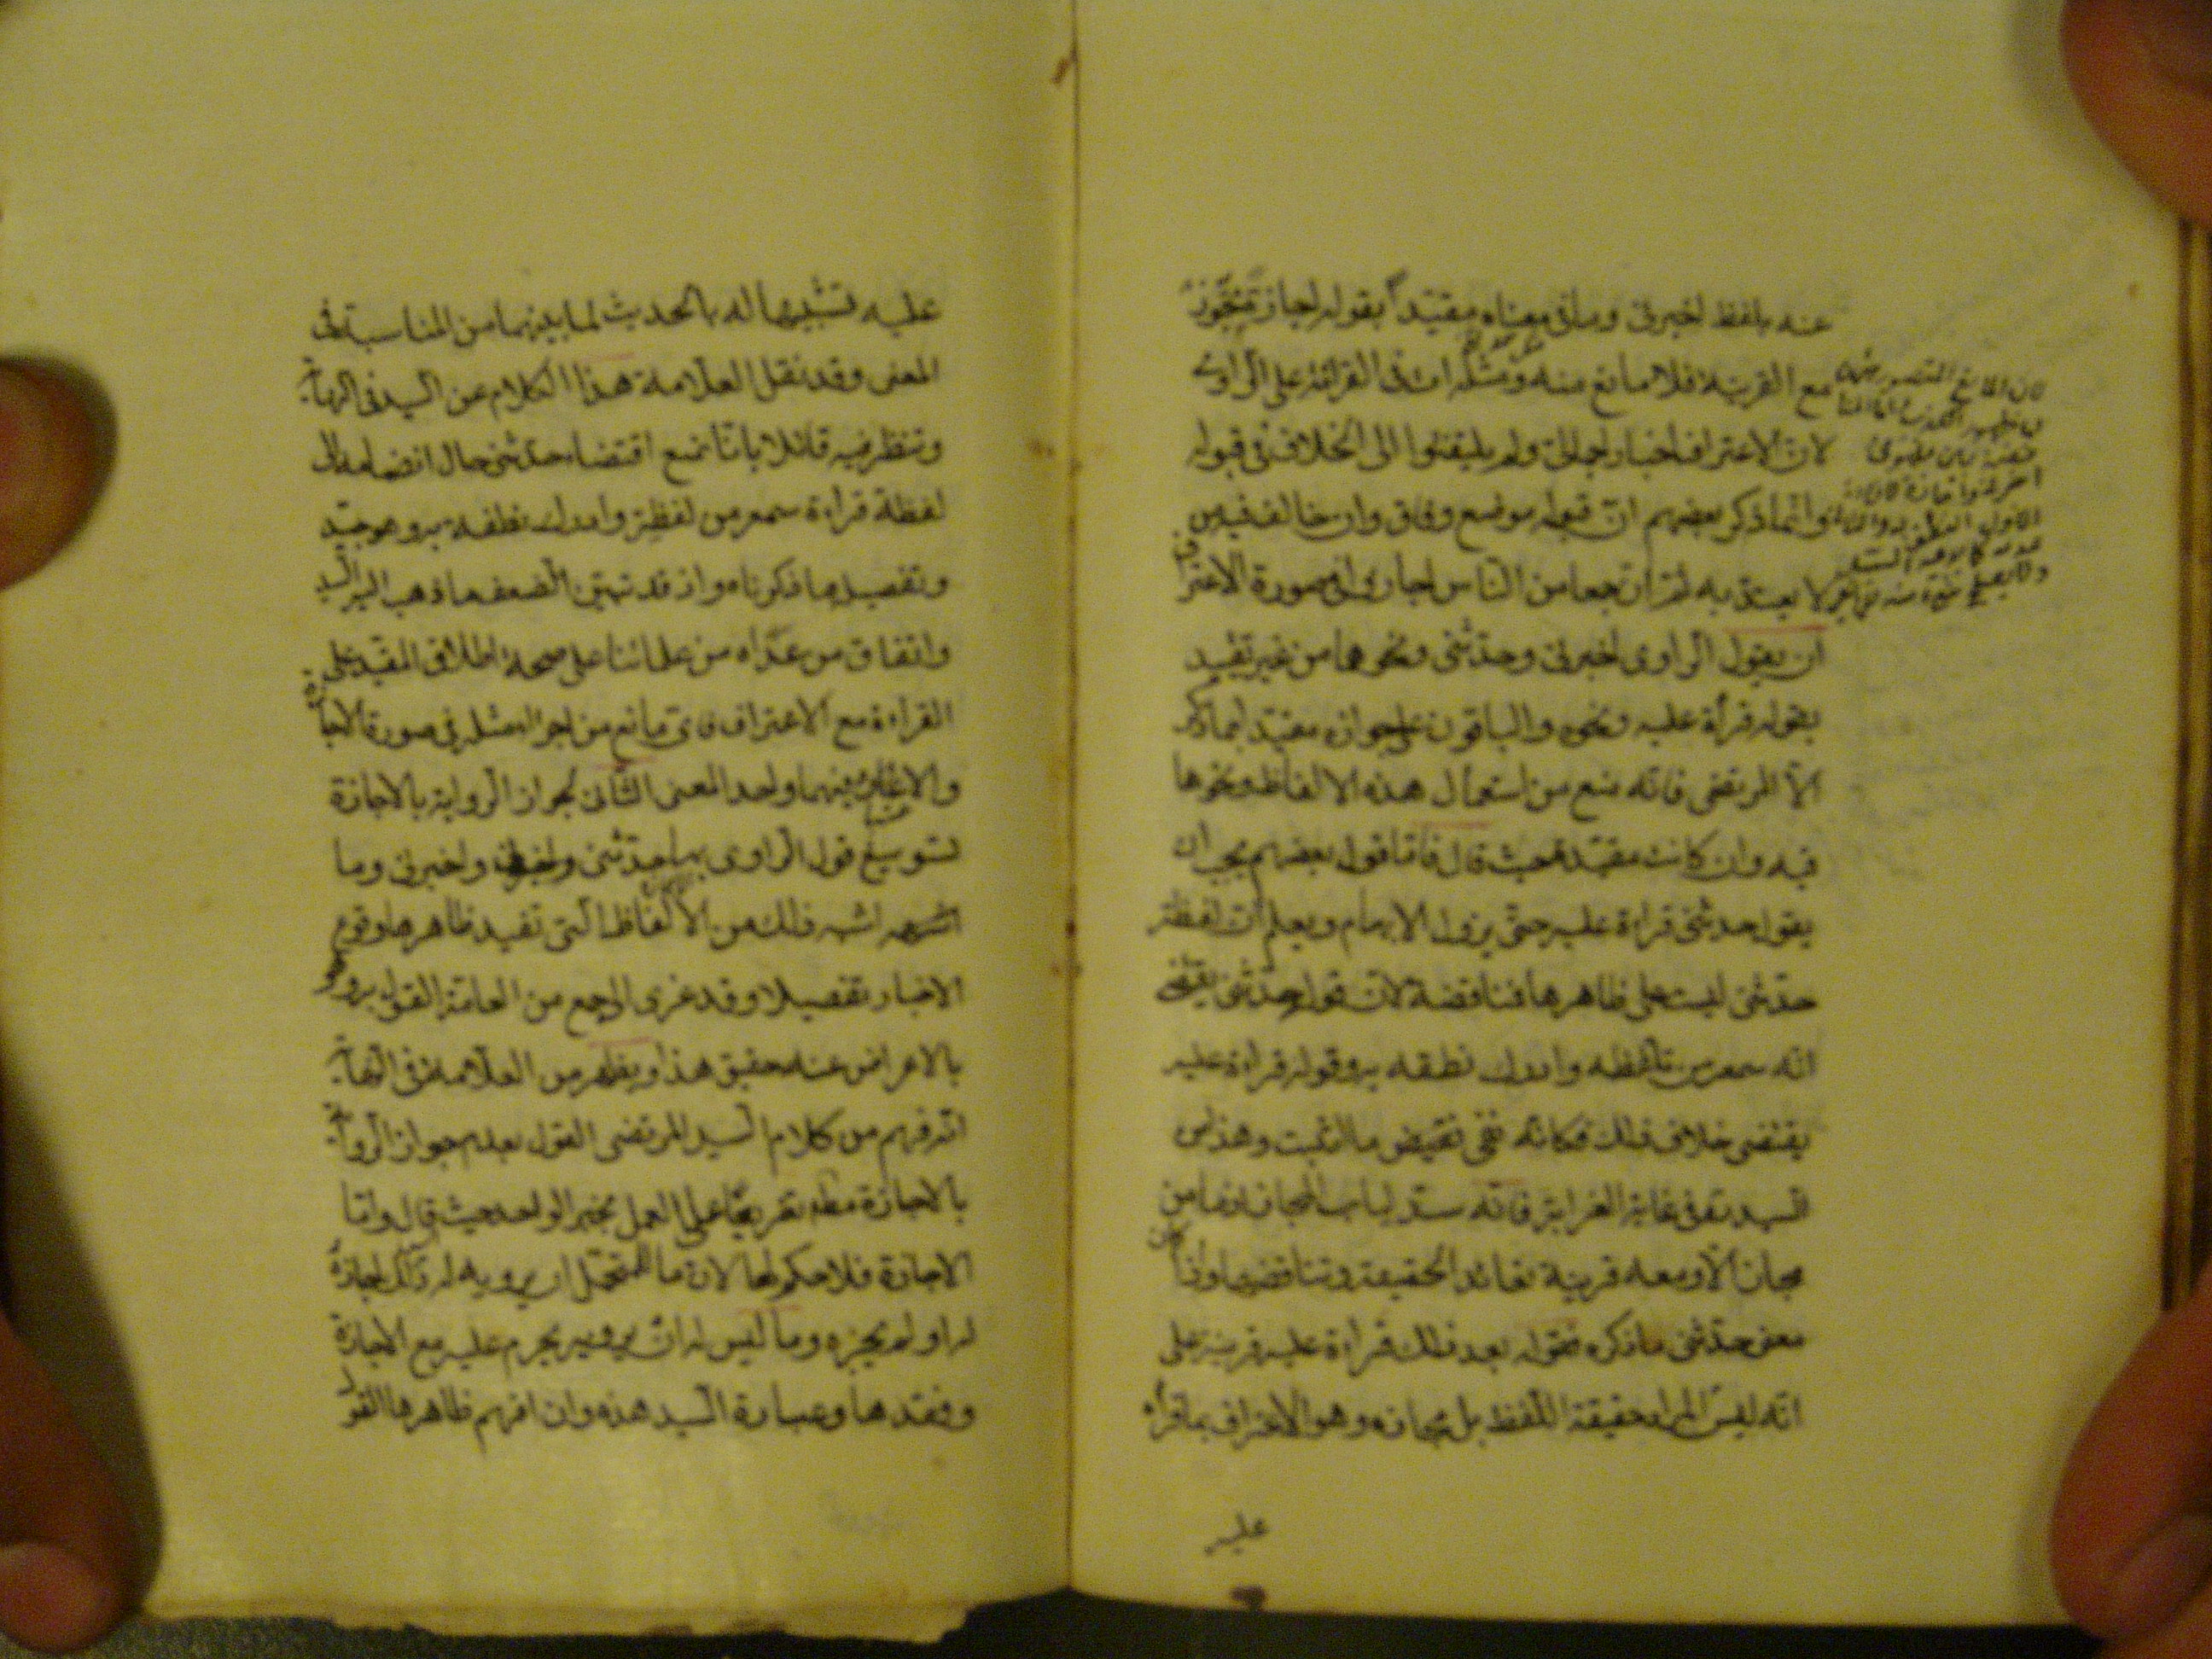 عنه بلفظ اخبرنى وما فى معناه مقيدا بقوله اجازة تجوز
مع القرينة فلا مانع منه ومثله ات فى القرائة على الراوى
لان الاعتراف اخبار اجمالى ولم يلتفتوا الى الخلاف فى قبوله
وانما ذكر بعضهم ان قبوله موضع وفاق وان خالف فيه من
لا يعتد به ثم ان جمعا من الناس اجاز فى صورة الاعتراف
ان يقول الراوى اخبرنى وحدثنى ونحوهما من غير تقييد
بقوله قرأة عليه ونحوه والباقون على جوازه مقيدا بما ذكر
الا المرتضى فانه منع من استعمال هذه الالفاظ ونحوها
فيه وان كانت مقيدة حيث قال فاما قول بعضهم يجب ان
يقول حدثنى قراءة عليه حتى يزول الابهام ويعلم ان لفظة
حدثنى ليست على ظاهرها فمناقضة لان قوله حدثنى يقتضى
انه سمعه من لفظه وادرك نطقه به وقوله قراءة عليه
يقتضى خلاف ذلك فكانه نفى نقيض ما اثبت وهذا من
السيد ره فى غاية الغرابة فانه سد لباب المجاز اذ ما من
مجاز الا ومعه قرينة تعاند الحقيقة وتناقضها ولما كان
معنى حدثنى ما ذكره فقوله بعد ذلك قراءة عليه قرينة على
انه ليس المراد حقيقة اللفظ بل مجازه وهو الاعتراف بما قرأه
عليه
عليه تشبيها له بالحديث لما بينهما من المناسبة فى
المعنى وقد نقل العلامة هذا الكلام عن السيد فى النهاية
وتنظر فيه قائلا بانا نمنع اقتضاء حدثنى حال انضمامه الى
لفظة قراءة سمعه من لفظه وادرك نطقه به وهو جيد
وتفصيله ما ذكرناه واذ قد تبين الضعف ما ذهب اليه السيد
واتفاق من عداه من علمائنا على صحة اطلاق المقيد على
القراءة مع الاعتراف فاى مانع من اجراء مثله فى صورة الاجازة
والاعتبار فيهما واحد المعنى الثانى لجواز الرواية بالاجازة
تسويغ قول الراوى بها حدثنى واخبرنى وما
اشبه ذلك من الالفاظ التى تفيد ظاهرها وقوع
الاخبار تفصيلا وقد عزى الى جمع من العامة القول به وهو
بالاعراض عنه حقيق هذا ويظهر من العلامة ره فى النهاية
انه فهم من كلام السيد المرتضى القول بعدم جواز الرواية
بالاجازة مطم تفريعا على العمل بخبر الواحد حيث قال واما
الاجازة فلا حكم لها لان ما للمتحمل ان يرويه له ذلك اجازه
له او لم يجزه وما ليس له ان يرويه يحرم عليه مع الاجازة
وفقدها وعبارة السيد هذه وان افهم ظاهرها القول